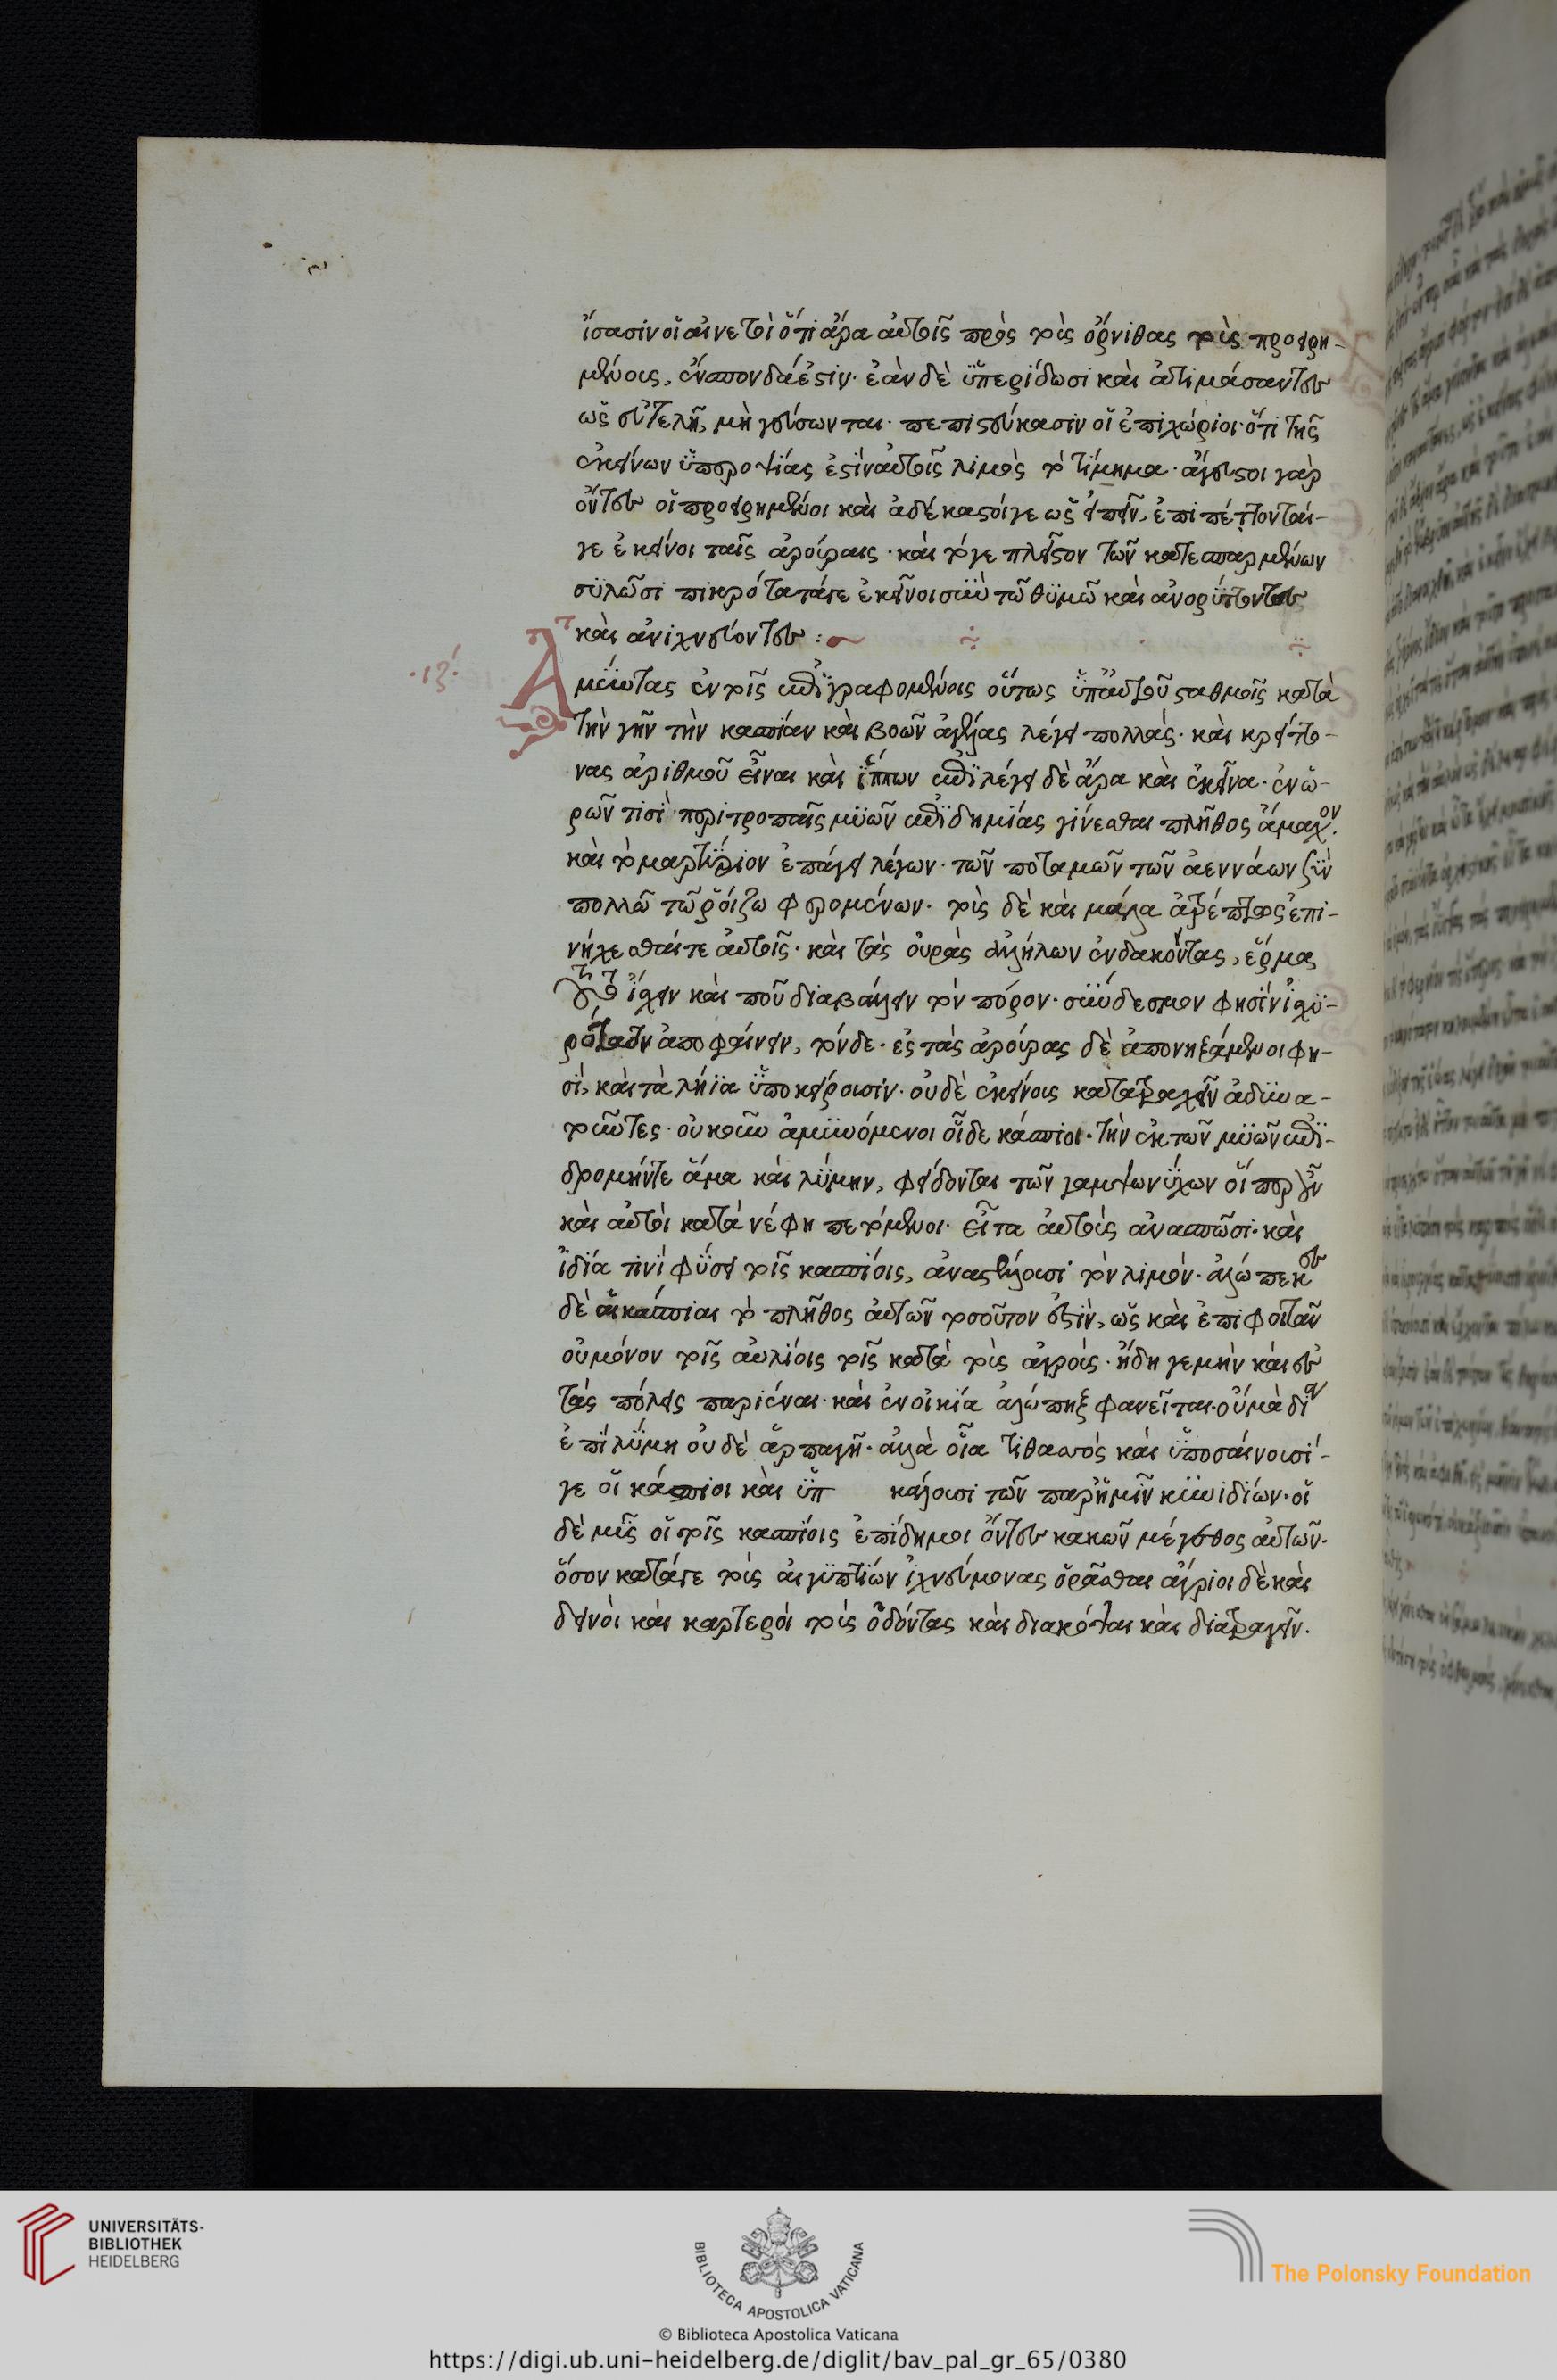 ἴσασιν οἵ αἰνετοὶ ὅτι ἄρα αὐτοῖς πρὸς τοὺς ὄρνιθας τοὺς προειρη-
μένους, ἔνσπονδά ἐστιν. ἐὰν δὲ ὑπερίδωσι καὶ ἀτιμάσαντες
ὡς εὐτελῆ, μὴ γεύσωνται. πεπιστεύκασιν οἱ ἐπιχώριοι. ὅτι τῆς
ἐκείνων ὑπεροψίας ἐστὶν αὐτοῖς λιμὸς τὸ τίμημα. ἄγευστοι γὰρ
ὄντες οἱ προειρημένοι καὶ ἀδέκαστοί γε ὡς εἰπεῖν, ἐπιπέτονταί-
γε ἐκεῖνοι ταῖς ἀρούραις. καὶ τό γε πλεῖστον τῶν κατεσπαρμένων
συλῶσι πικρότατά τε ἐκεῖνοι σὺν τῷ θυμῷ καὶ ἀνορύττοντες
καὶ ἀνιχνεύοντες :~
·ιζ·
Ἀμύντας ἐν τοῖς ἐπιγραφομένοις οὕτως ὑπ' αὐτοῦ σταθμοῖς κατὰ
τὴν γῆν τὴν κασπίαν καὶ βοῶν ἀγέλας λέγει πολλάς. καὶ κρείττο-
νας ἀριθμοῦ εἶναι καὶ ἵππων ἐπιλέγει δὲ ἄρα καὶ ἐκεῖνα. ἐν ὡ-
ρῶν τισὶ περιτροπαῖς μυῶν ἐπιδημίας γίνεσθαι πλῆθος ἄμαχον.
καὶ τὸ μαρτύριον ἐπάγει λέγων. τῶν ποταμῶν τῶν ἀεννάων σὺν
πολλῷ τῷ ῥοίζῳ φερομένων. τοὺς δὲ καὶ μάλα ἀτρέπτως ἐπι-
νήχεσθαί τε αὐτοῖς. καὶ τὰς οὐρὰς ἀλλήλων ἐνδακόντας, ἕρμα
τοῦτο ἴσχειν καὶ τοῦ διαβάλλειν τὸν πόρον. σύνδεσμον φησὶν ἰσχυ-
ρότατον ἀποφαίνειν, τόνδε. ἐς τὰς ἀρούρας δὲ ἀπονηξάμενοι φη-
σί, καὶ τὰ λήϊα ὑποκείρουσιν. οὐδὲ ἐκείνοις καταμαχεῖν ἀδυνα-
τοῦντες. οὐκοῦν ἀμυνόμενοι οἵδε κάσπιοι. τὴν ἐκ τῶν μυῶν ἐπι-
δρομήν τε ἅμα καὶ λύμην, φείδονται τῶν γαμψωνύχων οἵπερ οὖν
καὶ αὐτοὶ κατὰ νέφη πετόμενοι. εἶτα αὐτοὺς ἀνασπῶσι. καὶ
ἰδίᾳ τινὶ φύσει τοῖς κασπίοις, ἀναστέλλουσι τὸν λιμόν. ἀλώπεκες
δὲ αἱ κάσπιαι τὸ πλῆθος αὐτῶν τοσοῦτον ἐστὶν, ὡς καὶ ἐπιφοιτᾶν
οὐ μόνον τοῖς αὐλίοις τοῖς κατὰ τοὺς ἀγρούς. ἤδη γε μὴν καὶ ἐς
τὰς πόλεις παριέναι. καὶ ἐν οἰκίᾳ ἀλώπηξ φανεῖται. οὐ μὰ δία
ἐπὶ λύμῃ οὐδὲ ἁρπαγῇ. ἀλλὰ οἷα τιθασός καὶ ὑποσαίνουσί-
γε οἱ κάσπιοι καὶ ὑπ κάλλουσι τῶν παρ' ἡμῖν κυνιδίων. οἱ
δὲ μῦς οἱ τοῖς κασπίοις ἐπίδημοι ὄντες κακῶν μέγεθος αὐτῶν.
ὅσον κατά τε τοὺς αἰγυπτίων ἰχνεύμονας ὁρᾶσθαι ἄγριοι δὲ καὶ
δεινοὶ καὶ καρτεροὶ τοὺς ὀδόντας καὶ διακόψαι καὶ διατραγεῖν.
UNIVERSITÄTS-
BIBLIOTHEK
HEIDELBERG
BIBLIOTECA APOSTOLICA VATICANA
© Biblioteca Apostolica Vaticana
The Polonsky Foundation
https://digi.ub.uni-heidelberg.de/diglit/bav_pal_gr_65/0380